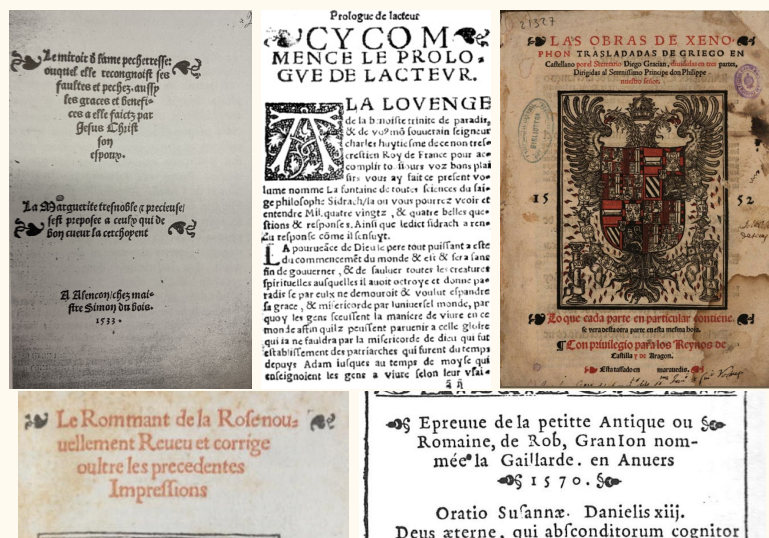 Le miroir de lame pecherresse:
ouquel elle recongnoist ses
faultes et pechez. aussy
les graces et benefi-
ces a elle faictz par
Jesus Christ
son
espoux.
La Marguerite tresnoble & precieuse
sest preposee a ceulx qui de
bon cueur la cerchoyent
A Alencon chez mai-
stre Simon du bois.
1533.
Prologue de lacteur
CY COM
MENCE LE PROLO-
GVE DE LACTEVR.
A LA LOVENGE
de la benoiste trinite de paradis,
& de vo⁹ mõ souuerain seigneur
charles huytiesme de ce nom tres-
crestien Roy de France pour ac-
complir to⁹iours voz bons plai
sirs vous ay fait ce present vo-
lume nomme La fontaine de toutes sciences du sai-
ge philosophe Sidrach/la ou vous pourrez veoir et
entendre Mil, quatre vingtz, & quatre belles que-
stions & responses. Ainsi que ledict sidrach a ren-
du response cõme il sensuyt.
LA pourueãce de Dieu le pere tout puissant a este
du commencemẽt du monde & est & sera sans
fin de gouuerner, & de sauluer toutes les creatures
spirituelles ausquelles il auoit octroye et donne pa-
radis se par eulx ne demouroit & voulut espandre
sa grace, & misericorde par luniuersel monde, par
quoy les gens sceussent la maniere de viure en ce
monde affin quilz peussent paruenir a celle gloire
qui ia ne fauldra par la misericorde de dieu qui fut
establissement des patriarches qui furent du temps
depuys Adam iusques au temps de moyse qui
enseignoient les gens a viure selon leur vsai-
21327
LAS OBRAS DE XENO-
PHON TRASLADADAS DE GRIEGO EN
Castellano por el Secretario Diego Gracian, diuididas en tres partes,
Dirigidas al Serenissimo Principe don Philippe
nuestro señor.
15 52
Lo que cada parte en particular contiene,
se vera desta otra parte en esta mesma hoja.
Con priuilegio para los Reynos de
Castilla y de Aragon.
Esta tassado en marauedis.
Le Rommant de la Rose nou-
uellement Reueu et corrige
oultre les precedentes
Impressions
Epreuue de la petitte Antique ou
Romaine, de Rob, GranIon nom-
mée la Gaillarde. en Anuers
1570.
Oratio Susannæ. Danielis xiij.
Deus æterne, qui absconditorum cognitor